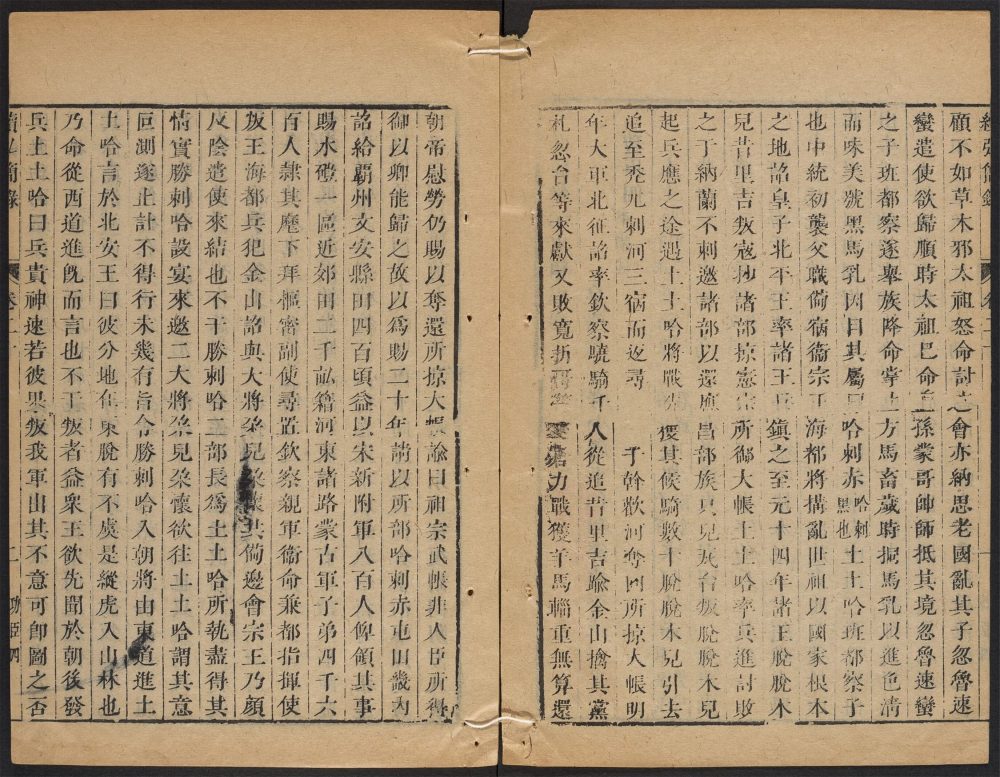 續弘簡錄
顧不如草木邪太祖怒命討之會亦納思老國亂其子忽魯速
蠻遣使欲歸順時太祖已命孫蒙哥帥師抵其境忽魯速蠻
之子班都察遂舉族降命掌上方馬畜歲時挏馬乳以進色清
而味美號黑馬乳因目其屬曰哈剌赤哈剌黑也土土哈班都察子
也中統初襲父職備宿衞宗王海都將搆亂世祖以國家根本
之地詔皇子北平王率諸王兵鎮之至元十四年諸王脫脫木
兒昔里吉叛寇抄諸部掠憲宗所御大帳土土哈率兵進討敗
之于納蘭不剌邀諸部以還應昌部族只兒瓦台叛脫脫木兒
起兵應之途遇土土哈將戰獲其候騎數十脫脫木兒引去
追至禿兀剌河三宿而返尋于斡歡河奪回所掠大帳明
年大軍北征詔率欽察驍騎千人從追昔里吉踰金山擒其黨
札忽台等來獻又敗寬折哥等力戰獲羊馬輜重無算還
朝帝慰勞仍賜以奪還所掠大帳諭曰祖宗武帳非人臣所得
御以卿能歸之故以爲賜二十年請以所部哈剌赤屯田畿內
詔給覇州文安縣田四百頃益以宋新附軍八百人俾領其事
賜水磑一區近郊田二千畝籍河東諸路蒙古軍子弟四千六
百人隷其麾下拜樞密副使尋置欽察親軍衞命兼都指揮使
叛王海都兵犯金山詔與大將朶兒朶懷共備邊會宗王乃顏
反陰遣使來結也不干勝剌哈二部長爲土土哈所執盡得其
情實勝剌哈設宴來邀二大將朶兒朶懷欲往土土哈謂其意
叵測遂止計不得行未幾有旨令勝剌哈入朝將由東道進土
土哈言於北安王曰彼分地在東脫有不虞是縱虎入山林也
乃命從西道進既而言也不干叛者益衆王欲先聞於朝後發
兵土土哈曰兵貴神速若彼果叛我軍出其不意可卽圖之否
續弘簡錄 卷二十 二 功臣四